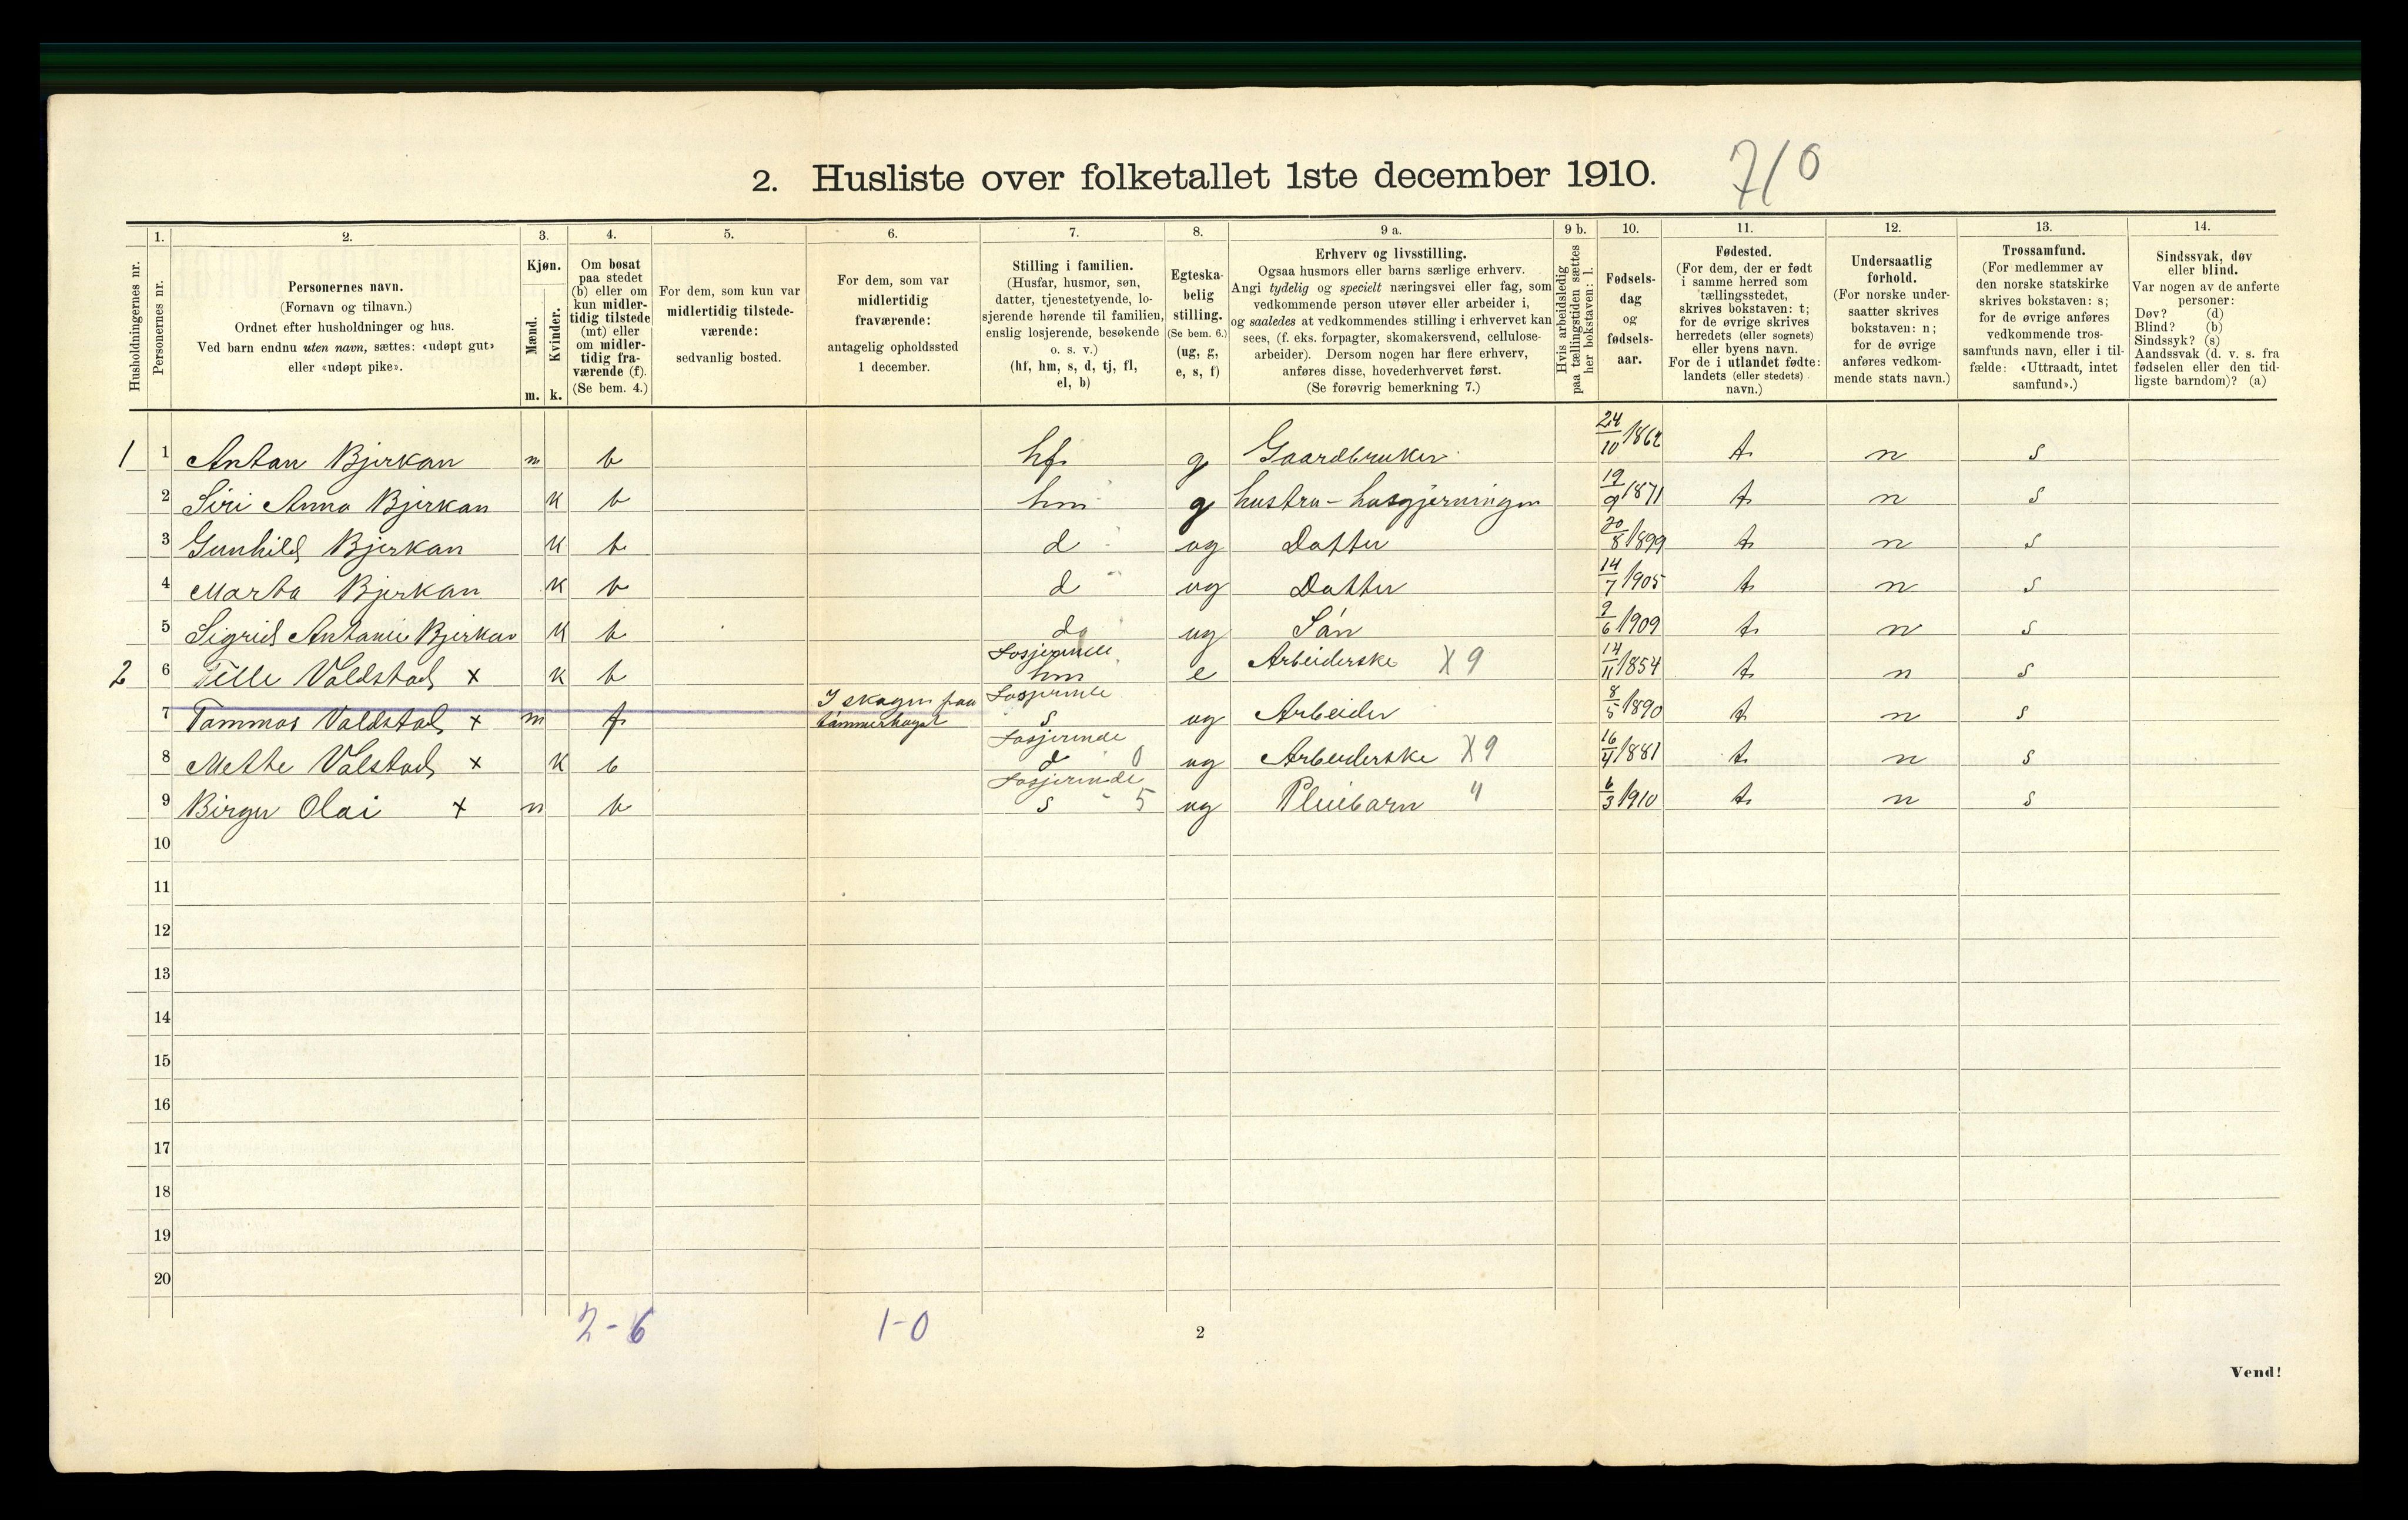 2. Husliste over folketallet 1ste december 1910. 710
Husholdningernes nr.
1. Personernes nr.
2. Personernes navn.
(Fornavn og tilnavn.)
Ordnet efter husholdninger og hus.
Ved barn endnu uten navn, sættes: «udøpt gut»
eller «udøpt pike».
3. Kjøn.
Mænd. m.
Kvinder. k.
4. Om bosat
paa stedet
(b) eller om
kun midler-
tidig tilstede
(mt) eller
om midler-
tidig fra-
værende (f).
(Se bem. 4.)
5. For dem, som kun var
midlertidig tilstede-
værende:
sedvanlig bosted.
6. For dem, som var
midlertidig
fraværende:
antagelig opholdssted
1 december.
7. Stilling i familien.
(Husfar, husmor, søn,
datter, tjenestetyende, lo-
sjerende hørende til familien,
enslig losjerende, besøkende
o. s. v.)
(hf, hm, s, d, tj, fl,
el, b)
8. Egteska-
belig
stilling.
(Se bem. 6.)
(ug, g,
e, s, f)
9 a. Erhverv og livsstilling.
Ogsaa husmors eller barns særlige erhverv.
Angi tydelig og specielt næringsvei eller fag, som
vedkommende person utøver eller arbeider i,
og saaledes at vedkommendes stilling i erhvervet kan
sees, (f. eks. forpagter, skomakersvend, cellulose-
arbeider). Dersom nogen har flere erhverv,
anføres disse, hovederhvervet først.
(Se forøvrig bemerkning 7.)
9 b. Hvis arbeidsledig
paa tællingstiden sættes
her bokstaven: l.
10. Fødsels-
dag
og
fødsels-
aar.
11. Fødested.
(For dem, der er født
i samme herred som
tællingsstedet,
skrives bokstaven: t;
for de øvrige skrives
herredets (eller sognets)
eller byens navn.
For de i utlandet fødte:
landets (eller stedets)
navn.)
12. Undersaatlig
forhold.
(For norske under-
saatter skrives
bokstaven: n;
for de øvrige
anføres vedkom-
mende stats navn.)
13. Trossamfund.
(For medlemmer av
den norske statskirke
skrives bokstaven: s;
for de øvrige anføres
vedkommende tros-
samfunds navn, eller i til-
fælde: «Uttraadt, intet
samfund».)
14. Sindssvak, døv
eller blind.
Var nogen av de anførte
personer:
Døv? (d)
Blind? (b)
Sindssyk? (s)
Aandssvak (d. v. s. fra
fødselen eller den tid-
ligste barndom)? (a)
1 1 Antan Bjerkan m b hf g Gaardbruker 24/10 1862 t n s
2 Siri Anna Bjerkan k b hm g hustru - husgjerningen 19/9 1871 t n s
3 Gunhild Bjerkan k b d ug Datter 20/8 1899 t n s
4 Marta Bjerkan k b d ug Datter 14/7 1905 t n s
5 Sigrid Antanie Bjerkan k b d ug Sán 9/6 1909 t n s
2 6 Tille Valdstad x k b Losjerende hm e Arbeiderske X9 14/11 1854 t n s
7 Tammas Valdstad x m f I skogen paa tømmerhogst Losjerende s ug Arbeider 8/5 1890 t n s
8 Mette Valstad x k b Losjerende d 0 ug Arbeiderske X9 16/4 1881 t n s
9 Birger Olai x m b Losjerende s - 5 ug Pleiebarn " 6/3 1910 t n s
10
11
12
13
14
15
16
17
18
19
20
2-6 1-0
2
Vend!